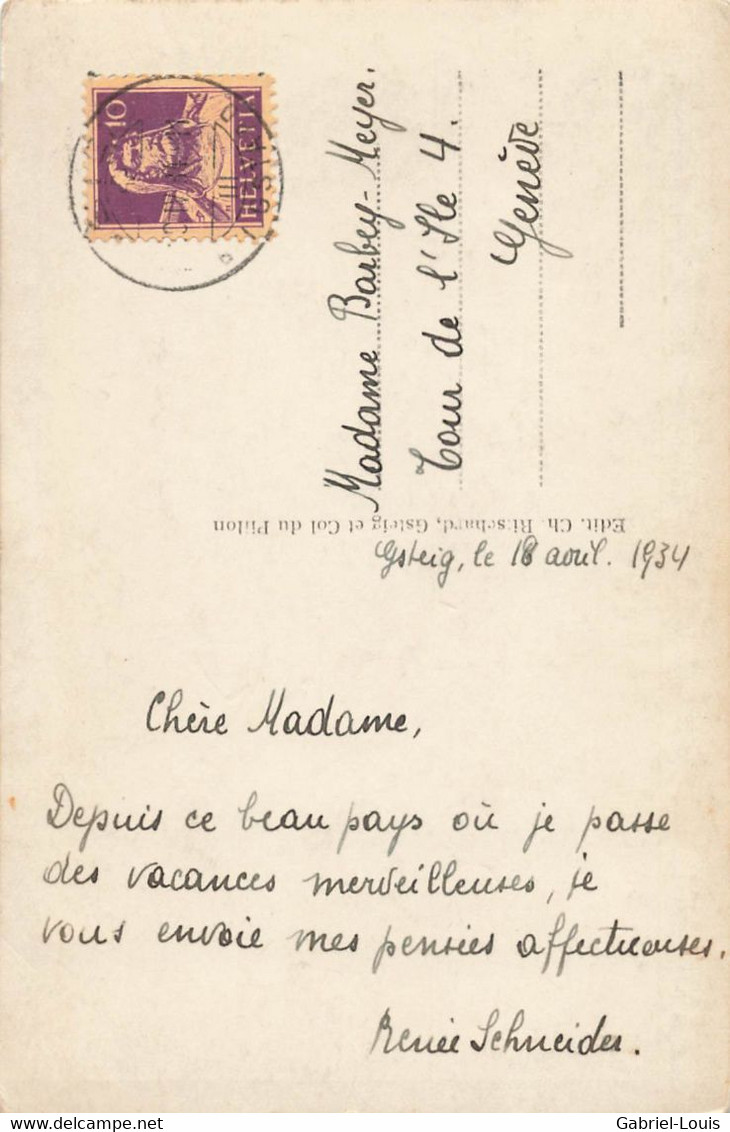 10
HELVETIA
Madame Barbey-Meyer.
Tour de l'Ile 4.
Genève
Edit. Ch. Ritschard, Gsteig et Col du Pillon
Gsteig, le 18 avril. 1934
Chère Madame,
Depuis ce beau pays où je passe
des vacances merveilleuses, je
vous envoie mes pensées affectueuses.
Renée Schneider.
delcampe.net
Gabriel-Louis